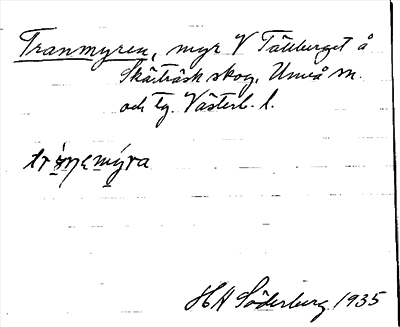 Tranmyren, myr V Tällberget å
Skärträsk skog, Umeå sn.
och tg. Västerb. l.
HA Söderberg 1935